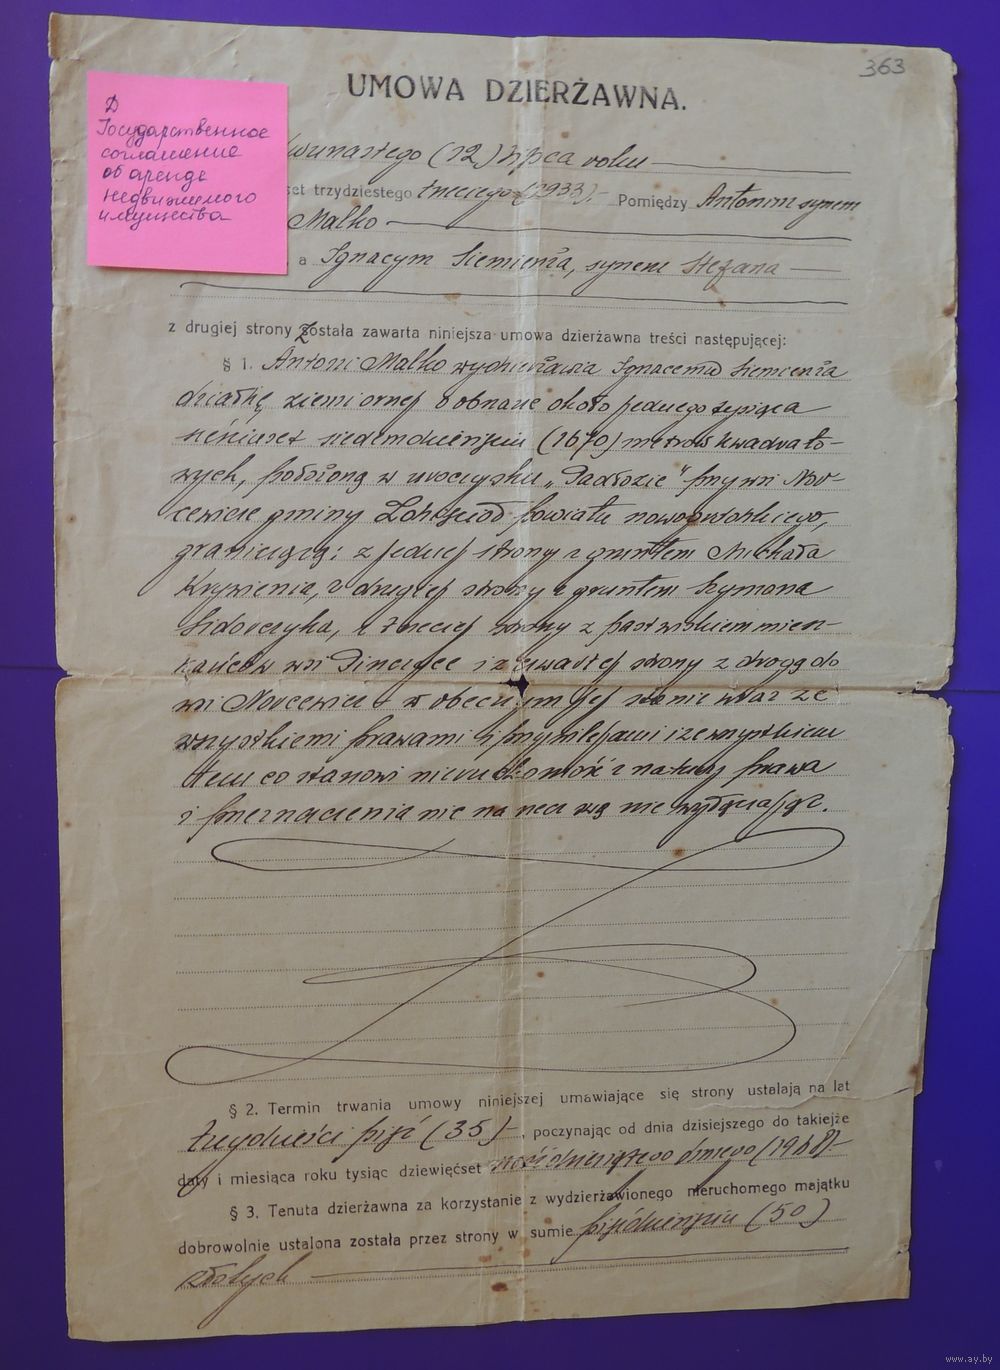 363
UMOWA DZIERŻAWNA.
Д
Государственное
соглашение
об аренде
недвижимого
имущества
dwunastego (12) lipca roku
set trzydziestego trzeciego (1933). Pomiędzy Antonim synem
Malko
a Ignacym Siemieńa, synem Stefana
z drugiej strony została zawarta niniejsza umowa dzierżawna treści następującej:
§ 1. Antoni Malko wydzierżawia Ignacemu Siemieńa
działkę ziemi ornej o obszarze około jednego tysiąca
sześciuset siedemdziesięciu (1670) metrów kwadrato-
wych, położoną w uroczysku „ " przy wsi Nor-
cewicze gminy powiatu nowogródzkiego,
graniczącą: z jednej strony z gruntem Michała
z drugiej strony z gruntem Szymona
Sidorczyka, z trzeciej strony z pastwiskiem miesz-
kańców wsi i z czwartej strony z drogą do
wsi Norcewicz w obecnym jej stanie wraz ze
wszystkiemi prawami i przynależami i ze wszystkiem
tem co stanowi nieruchomość z natury prawa
i przeznaczenia nic na rzecz swą nie wyłączając.
§ 2. Termin trwania umowy niniejszej umawiające się strony ustalają na lat
trzydzieści pięć (35), poczynając od dnia dzisiejszego do takiejże
daty i miesiąca roku tysiąc dziewięćset sześćdziesiątego ósmego (1968).
§ 3. Tenuta dzierżawna za korzystanie z wydzierżawionego nieruchomego majątku
dobrowolnie ustalona została przez strony w sumie pięćdziesięciu (50)
złotych
www.ay.by